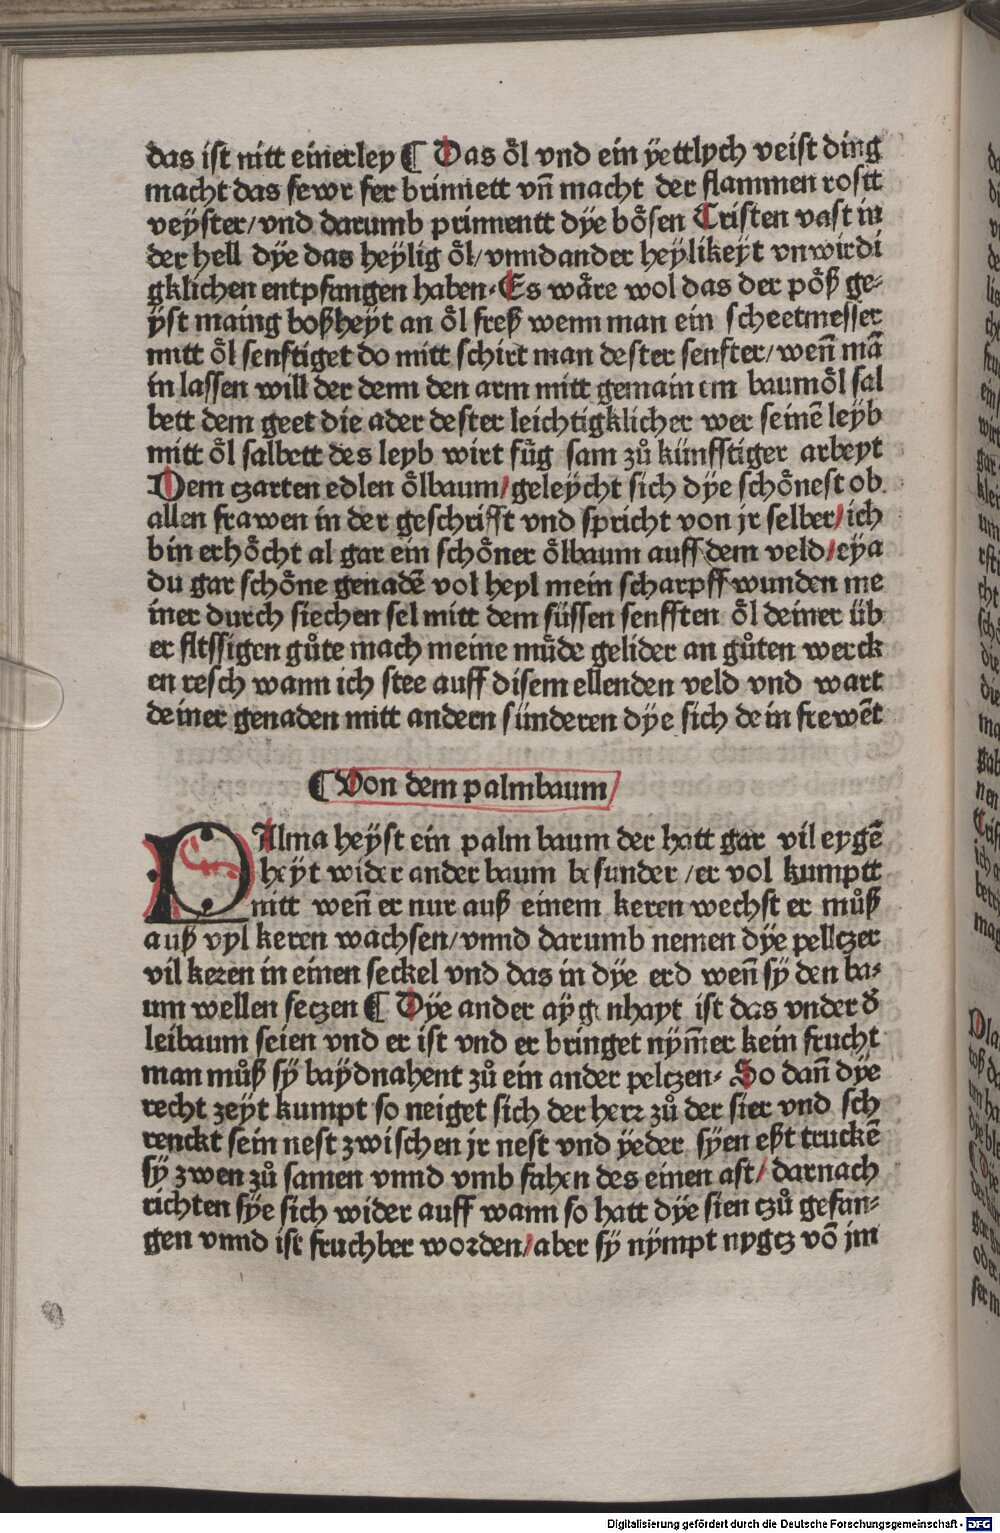 das ist nitt einerley ¶ Das öl vnd ein yettlych veist ding
macht das fewr fer brinnett vn̄ macht der flammen rostt
veÿster/vnd darumb prinnentt dÿe bösen Cristen vast in
der hell dÿe das heÿlig öl/vnnd ander heÿlikeÿt vnwirdi
gklichen entpfangen haben. Es wäre wol das der pöß ge⸗
ÿst maing boßheÿt an öl freß wenn man ein scheetmesser
mitt öl senftiget do mitt schirt man dester senfter/wen̄ mā
in lassen will der denn den arm mitt gemainem baumöl sal
bett dem geet die ader dester leichtigklicher wer seinē leÿb
mitt öl salbett des leyb wirt fuͤg sam zů künfftiger arbeyt
Dem czarten edlen ölbaum/geleÿcht sich dÿe schönest ob
allen frawen in der geschrifft vnd spricht von jr selber/ich
bin erhöcht al gar ein schöner ölbaum auff dem veld/eÿa
du gar schöne genadē vol heyl mein scharpff wunden me
iner durch siechen sel mitt dem süssen senfften öl deiner üb
er flissigen gůte mach meine müde gelider an gůten werck
en resch wann ich stee auff disem ellenden veld vnd wart
deiner genaden mitt andern sünderen dÿe sich dein frewēt
¶ Von dem palmbaum
PAlma heÿst ein palm baum der hatt gar vil eygē
heÿt wider ander baum besunder/er vol kumptt
nitt wen̄ er nur auß einem keren wechst er můß
auß vyl keren wachsen/vnnd darumb nemen dÿe pelltzer
vil keren in einen seckel vnd das in dÿe erd wen̄ sÿ den ba⸗
um wellen seczen ¶ Dÿe ander aÿgenhayt ist das vnder d̉
leibaum seien vnd er ist vnd er bringet nÿm̄er kein frucht
man můß sÿ baÿdnahent zů ein ander pelczen⸗ So dan̄ dÿe
recht zeÿt kumpt so neiget sich der herr zů der sier vnd sch
renckt sein nest zwischen jr nest vnd ÿeder sÿen eßt truckē
sÿ zwen zů samen vnnd vmb fahen des einen ast/darnach
richten sÿe sich wider auff wann so hatt dÿe sien czů gefan⸗
gen vnnd ist fruchber worden/aber sÿ nÿmpt nygcz vō jm
Digitalisierung gefördert durch die Deutsche Forschungsgemeinschaft - DFG